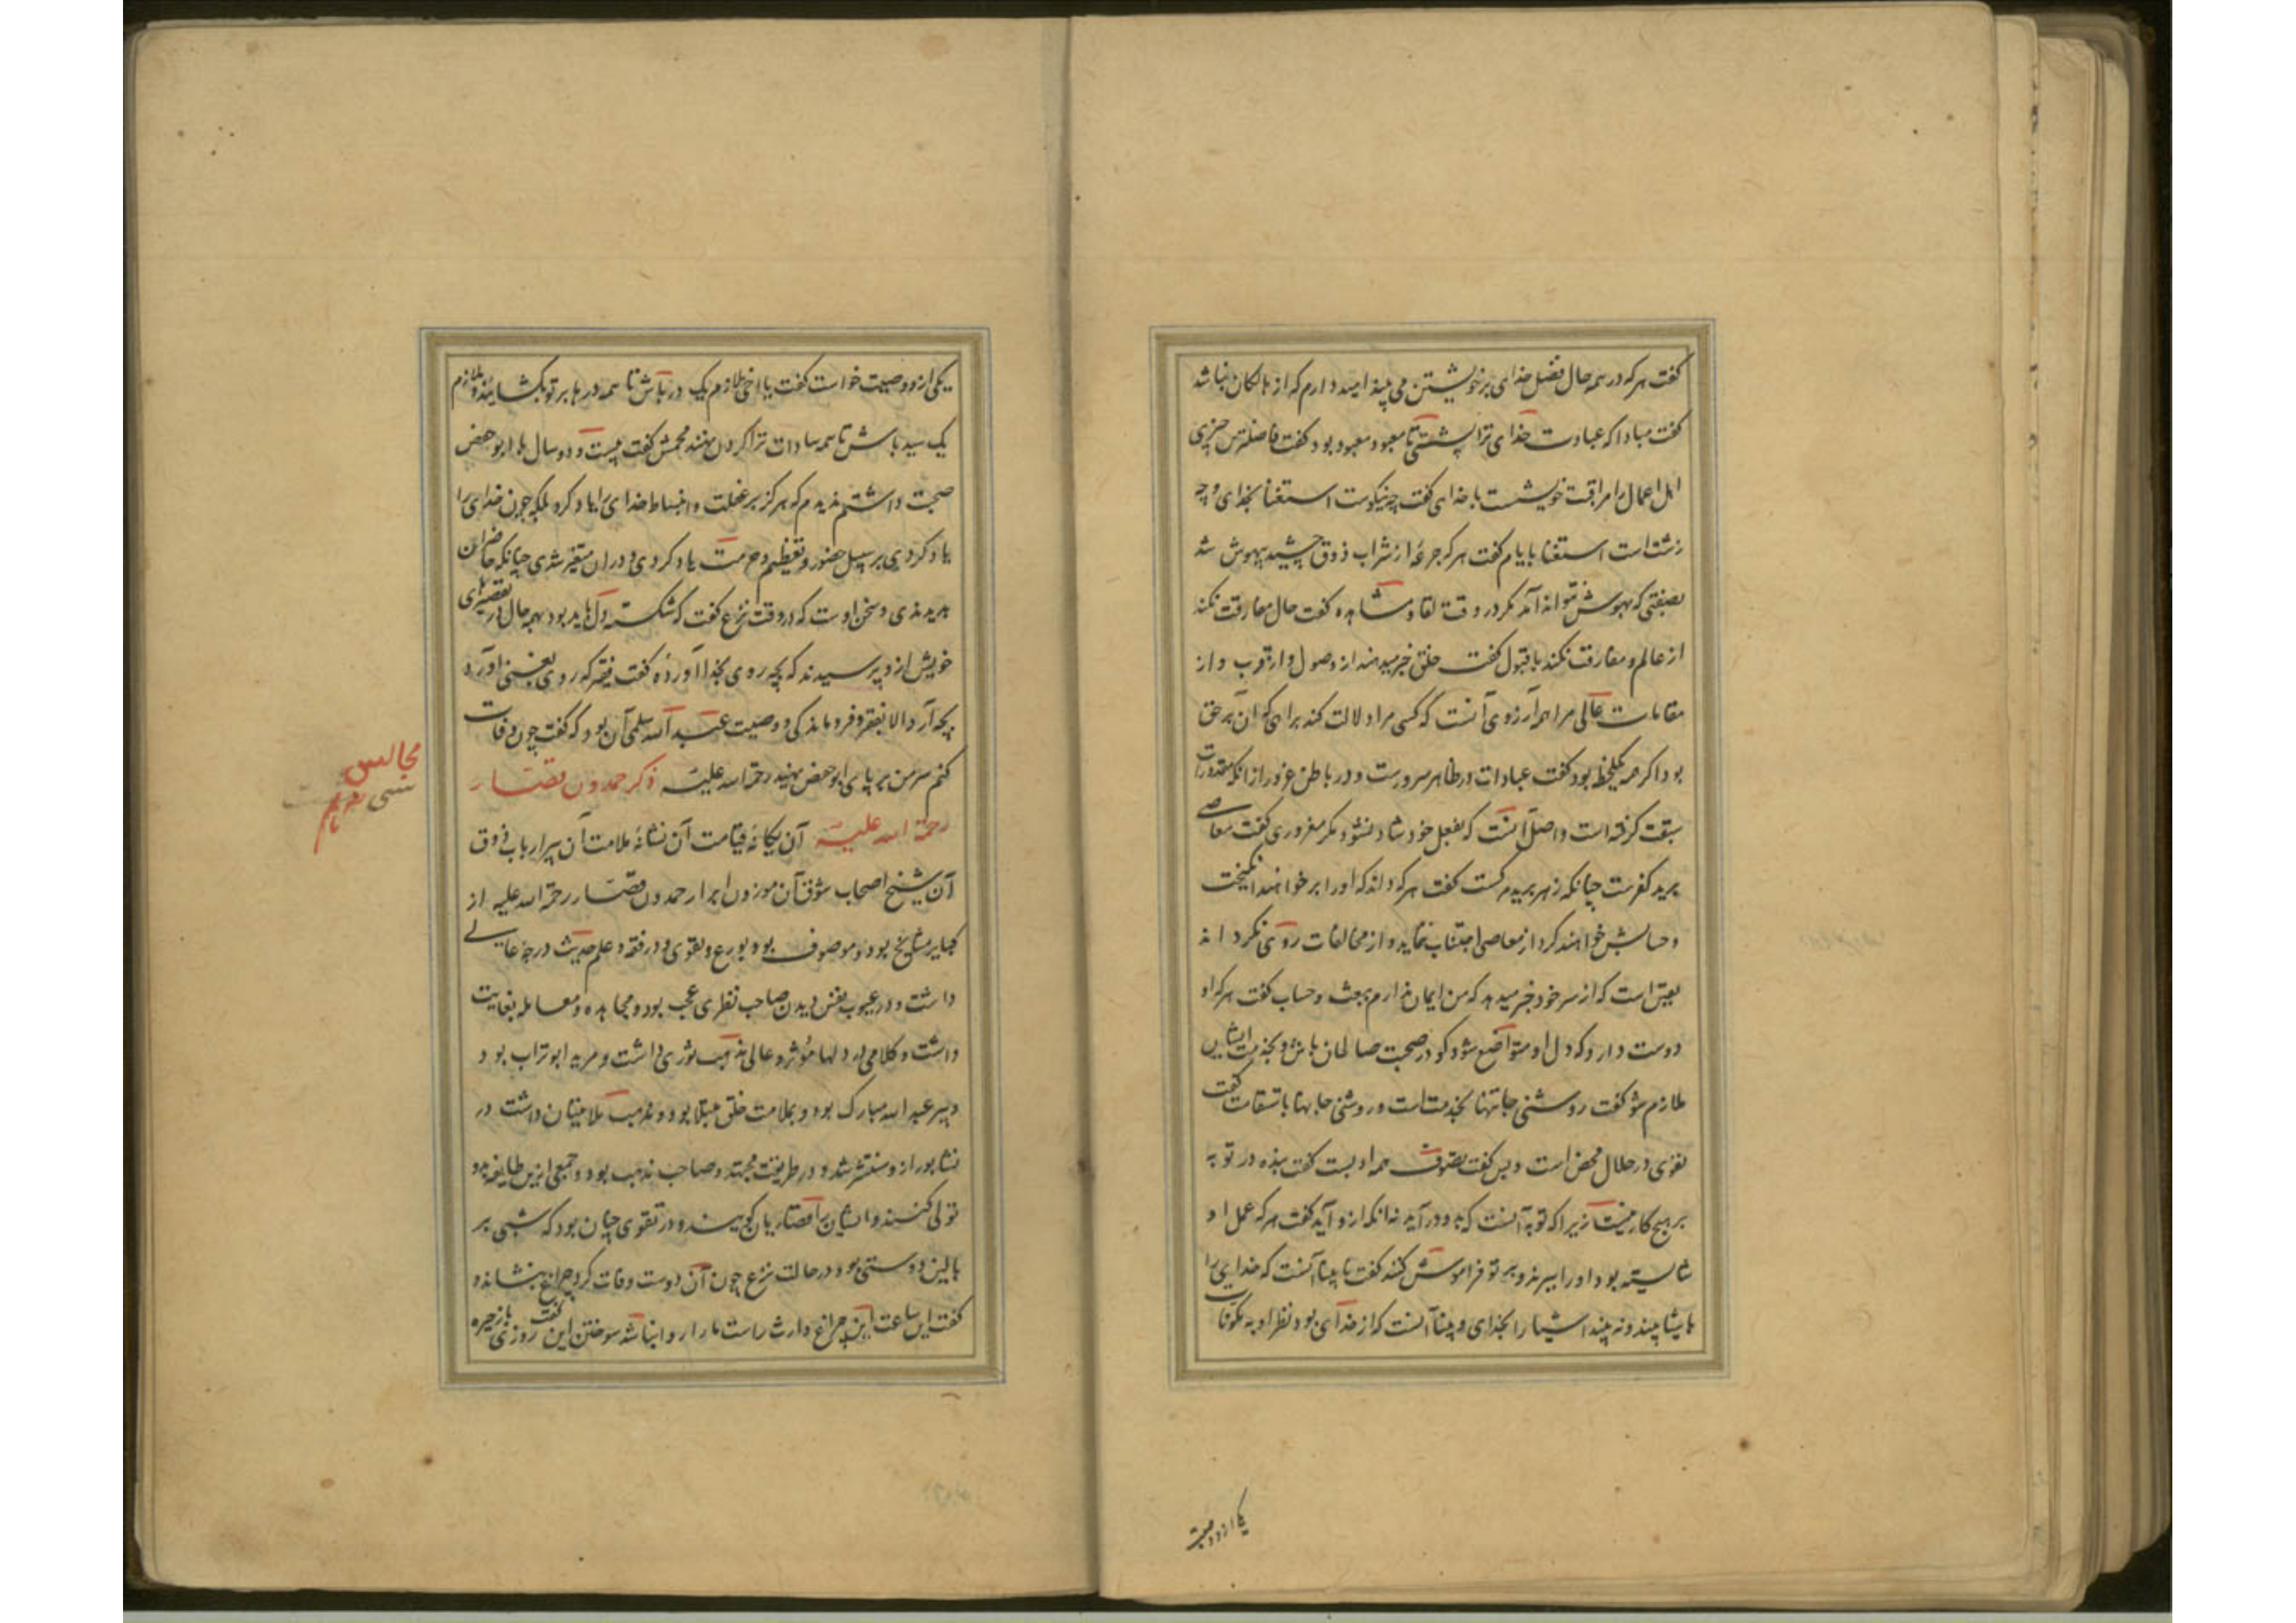 گفت هر که در همه حال فضل خدای بر خویشتن می بیند امید دارم که از هالکان نباشد
گفت مبادا که عبادت خدای ترا پشتی تا معبود معبود بود گفت فاضلترین چیزی
اهل اعمال را مراقبت خویشست با خدای گفت چه نیکوست استغنا بخدای و چه
زشت است استغنا بایام گفت هر که جرعهٔ از شراب ذوق چشید بیهوش شد
بصفتی که بهوش نتواند آمد مگر در وقت لقا و مشاهده گفت حال مفارقت نکند
از عالم و مفارقت نکند با قبول گفت خلق خبر میدهند از وصول و از قرب و از
مقامات عالی مرا همه آرزوی آنست که کسی مرا دلالت کند براهی که آن بر حق
بود اگر همه یکلحظه بود گفت عبادات در ظاهر سرورست و در باطن غرور از آنکه مقدورات
سبقت گرفته است و اصل آنست که بفعل خود شاد نشود مگر مغروری گفت معاصی
برید کفرست چنانکه زهر برید مرگست گفت هر که داند که او را بر خواهند انگیخت
و حسابش خواهند کرد از معاصی اجتناب ننماید و از مخالفات روی نگرداند
یقین است که از سر خود خبر میدهد که من ایمان ندارم ببعث و حساب گفت هر که او
دوست دارد که دل او متواضع شود گو در صحبت صالحان باش و بخدمت ایشان
ملازم شو گفت روشنی جانتنها بخدمت است و روشنی جانها باستقامت گفت
تقوی در حلال محض است و بس گفت تصوف همه ادبست گفت بنده در توبه
بر هیچ کار نیست زیرا که توبه آنست که بدو درآید نه آنکه ازو آید گفت هر که عمل او
شایسته بود او را ببرند و بر تو فراموش کنند گفت نابینا آنست که خدای را
باشیا بیند و نه بیند اشیا را بخدای و بینا آنست که از خدای بود نظر او به مکونات
یکی ازو وصیت
یکی ازو وصیت خواست گفت یا اخی ملازم یک در باش تا همه درها بر تو بگشایند و ملازم
یک سید باش تا همه سادات ترا گردن نهند محمش گفت بیست و دو سال با ابو حفص
صحبت داشتم ندیدم که هرگز بر غفلت و انبساط خدای را یاد کرد بلکه چون خدای را
یاد کردی بر سبیل حضور و تعظیم و حرمت یاد کردی و در آن متغیر شدی چنانکه حاضران
بدیدندی و سخن اوست که در وقت نزع گفت که شکسته دل باید بود بهمه حال در تقصیرهای
خویش ازو پرسیدند که بچه روی بخدا آوردهٔ گفت فقیر که روی بغنی آورد
بچه آرد الا بفقر و فروماندگی و وصیت عبد الله سلمی آن بود که گفت چون وفات
کنم سر من بر پای ابو حفص نهید رحمة الله علیه ذکر حمدون قصار
رحمة الله علیه آن یگانهٔ قیامت آن نشانهٔ ملامت آن پیر ارباب ذوق
آن شیخ اصحاب شوق آن موزون ابرار حمدون قصار رحمة الله علیه از
کبایر مشایخ بود و موصوف بود بورع و تقوی و در فقه و علم حدیث درجهٔ عالی
داشت و در عیوب نفس دیدن صاحب نظری عجب بود و مجاهده و معامله بغایت
داشت و کلامی در دلها مؤثر و عالی مذهب ثوری داشت و مرید ابو تراب بود
و پیر عبد الله مبارک بود و بملامت خلق مبتلا بود و مذهب ملامتیان داشت در
نشابور ازو منتشر شد و در طریقت مجتهد و صاحب مذهب بود و جمعی ازین طایفه بدو
تولی کنند و ایشان را قصاریان گویند و در تقوی چنان بود که شبی بر
بالین دوستی بود در حالت نزع چون آن دوست وفات کرد چراغ بنشاند و
گفت این ساعت این چراغ وارث راست ما را روا نباشد سوختن این گفت روزی باز حیره
مجالس